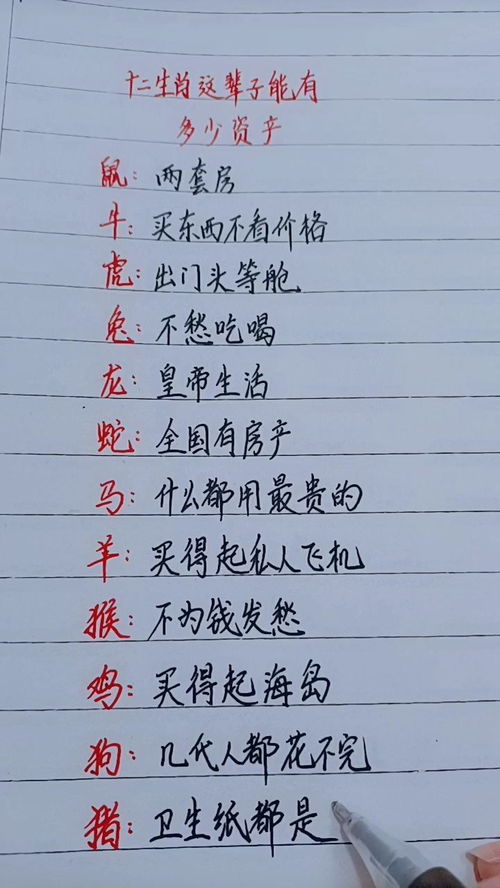 十二生肖这辈子能有
多少资产
鼠：两套房
牛：买东西不看价格
虎：出门头等舱
兔：不愁吃喝
龙：皇帝生活
蛇：全国有房产
马：什么都用最贵的
羊：买得起私人飞机
猴：不为钱发愁
鸡：买得起海岛
狗：几代人都花不完
猪：卫生纸都是